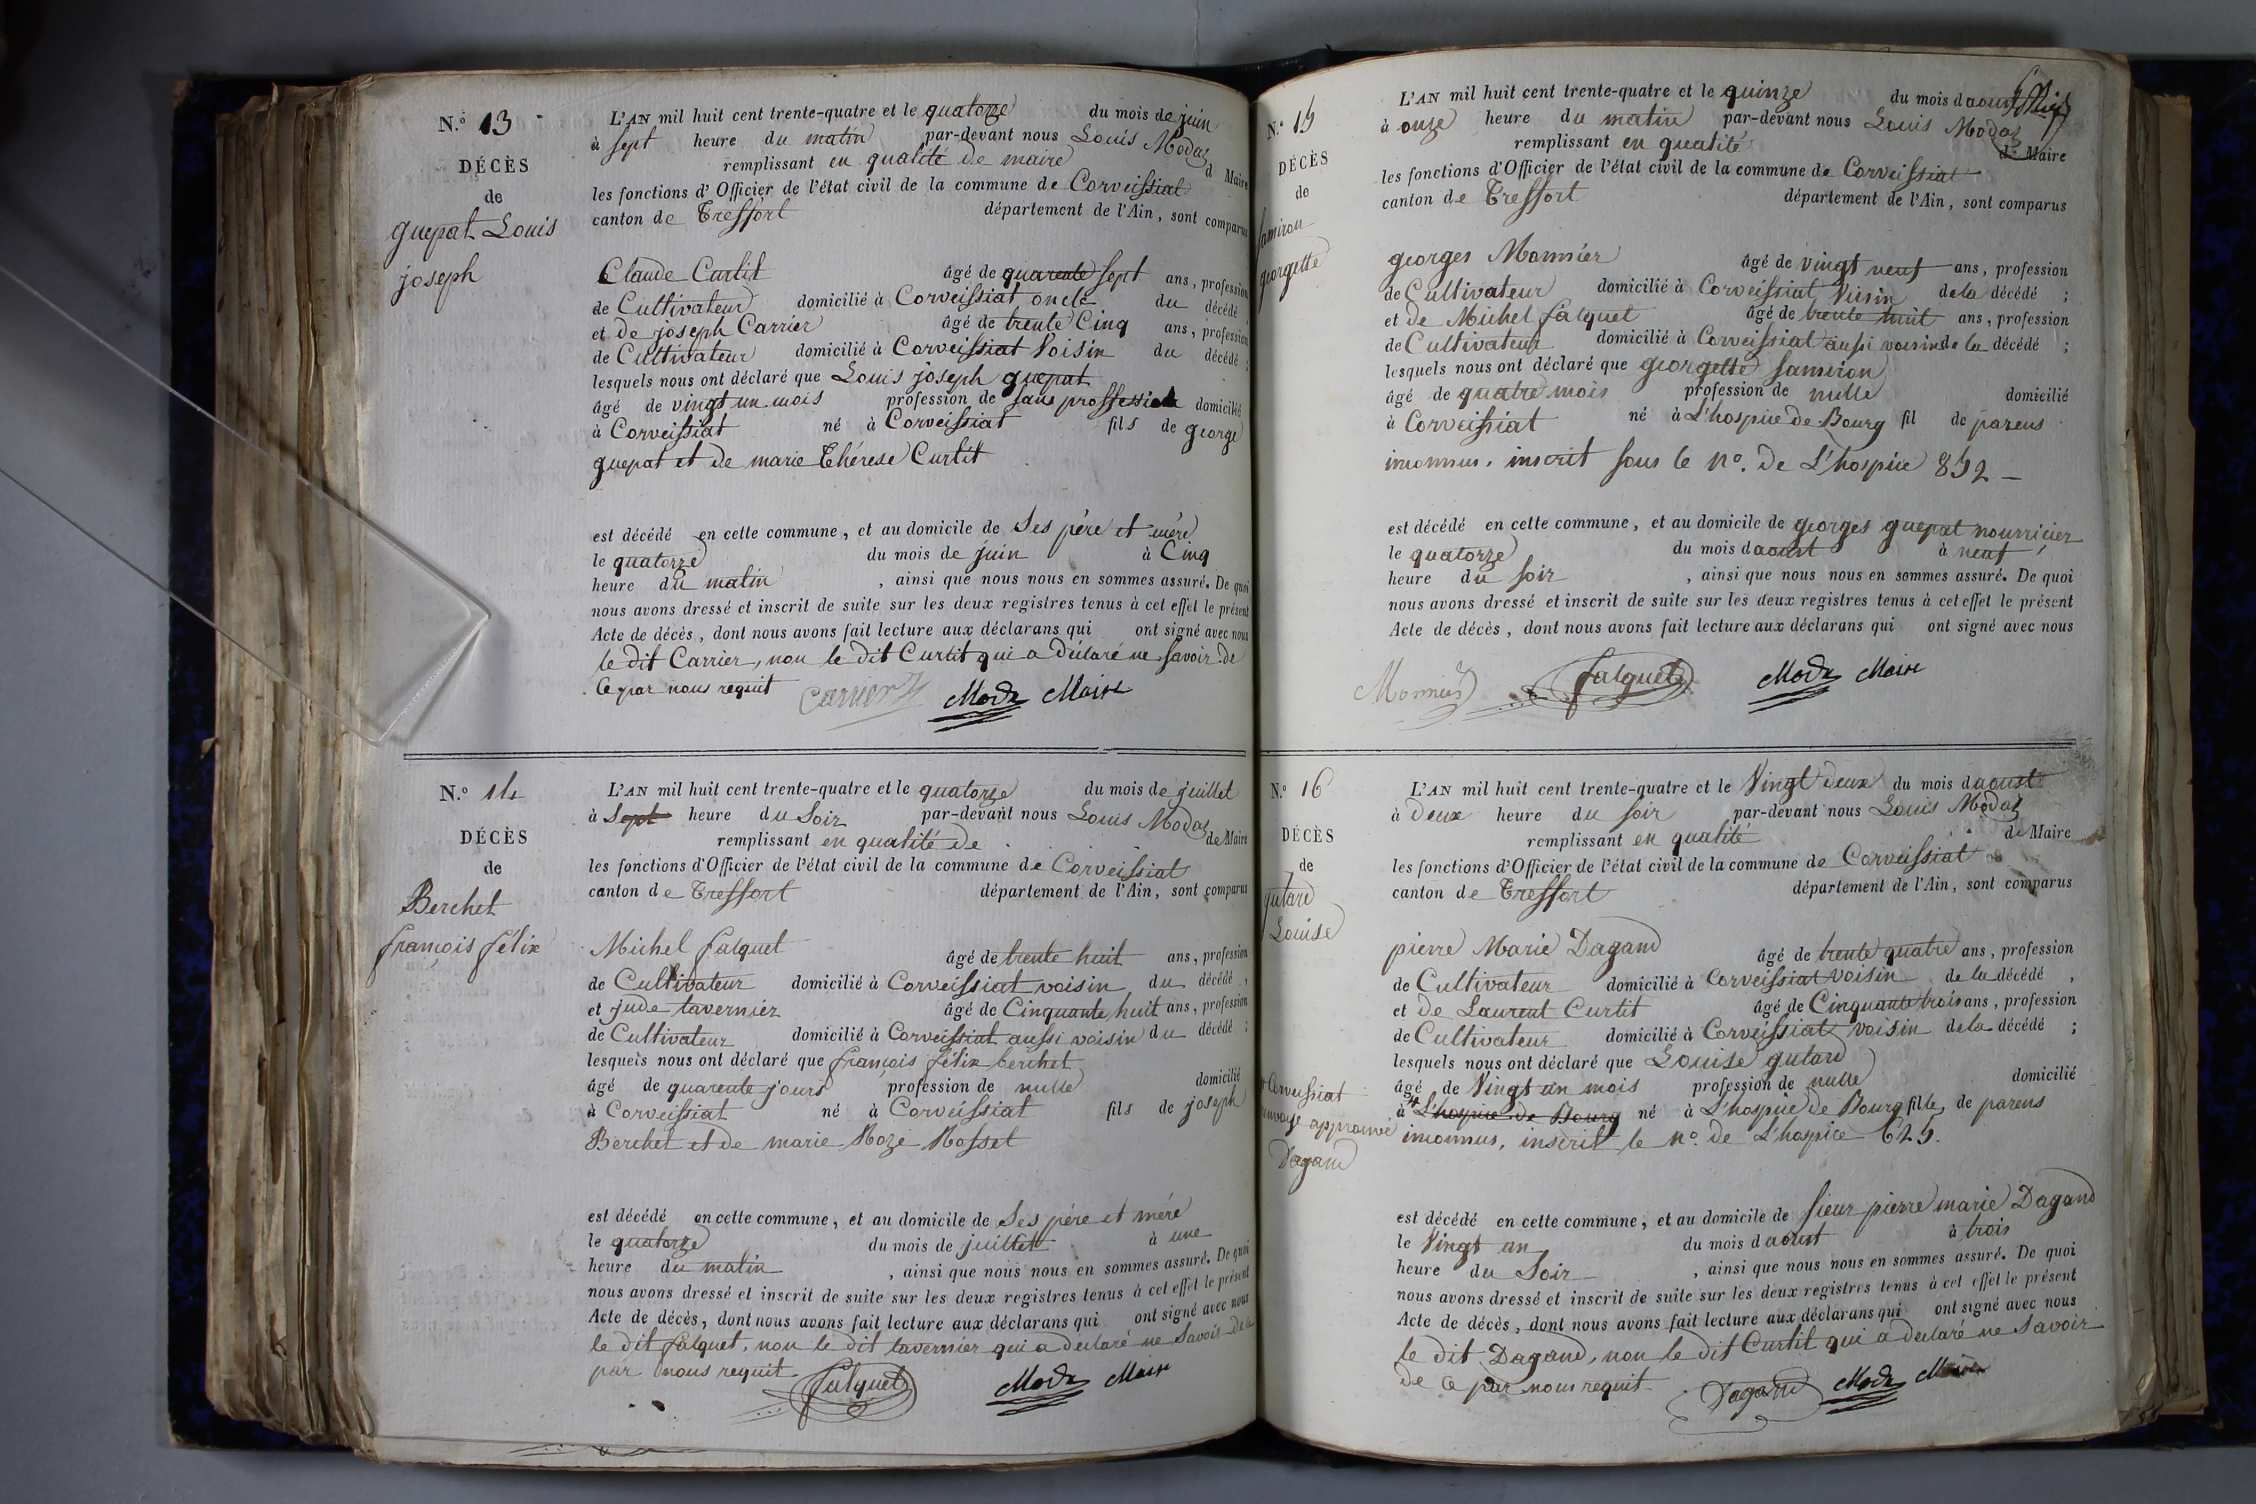 N.o 13
DÉCÈS
de
guepat Louis
joseph
L'AN mil huit cent trente-quatre et le quatorze du mois de juin
à sept heure du matin par-devant nous Louis Modas
remplissant en qualité de maire d Maire
les fonctions d'Officier de l'état civil de la commune de Corveissiat
canton de Treffort département de l'Ain, sont comparus
Claude Curtit âgé de quarente sept ans, profession
de Cultivateur domicilié à Corveissiat oncle du décédé
et de joseph Carrier âgé de trente Cinq ans, profession
de Cultivateur domicilié à Corveissiat Voisin du décédé ;
lesquels nous ont déclaré que Louis joseph guepat
âgé de vingt un mois profession de sans proffession domicilié
à Corveissiat né à Corveissiat fils de george
guepat et de marie Thérese Curtit
est décédé en cette commune, et au domicile de Ses père et mère
le quatorze du mois de juin à Cinq
heure du matin , ainsi que nous nous en sommes assuré. De quoi
nous avons dressé et inscrit de suite sur les deux registres tenus à cet effet le présent
Acte de décès, dont nous avons fait lecture aux déclarans qui ont signé avec nous
le dit Carrier, non le dit Curtit qui a déclaré ne savoir de
Ce par nous requit Carrier Modas Maire
N.o 14
DÉCÈS
de
Berchet
françois félix
L'AN mil huit cent trente-quatre et le quatorze du mois de juillet
à Sept heure du Soir par-devant nous Louis Modas
remplissant en qualité de de Maire
les fonctions d'Officier de l'état civil de la commune de Corveissiat
canton de Treffort département de l'Ain, sont comparus
Michel falquet âgé de trente huit ans, profession
de Cultivateur domicilié à Corveissiat voisin du décédé ,
et jude tavernier âgé de Cinquante huit ans, profession
de Cultivateur domicilié à Corveissiat aussi voisin du décédé ;
lesquels nous ont déclaré que françois félix berchet
âgé de quarente jours profession de nulle domicilié
à Corveissiat né à Corveissiat fils de joseph
Berchet et de marie Roze Rosset
est décédé en cette commune, et au domicile de Ses père et mère
le quatorze du mois de juillet à une
heure du matin , ainsi que nous nous en sommes assuré. De quoi
nous avons dressé et inscrit de suite sur les deux registres tenus à cet effet le présent
Acte de décès, dont nous avons fait lecture aux déclarans qui ont signé avec nous
le dit falquet, non le dit tavernier qui a declaré ne Savoir de ce
par nous requit falquet Modas Maire
N.o 15
DÉCÈS
de
samiron
georgette
L'AN mil huit cent trente-quatre et le quinze du mois d aoust
à onze heure du matin par-devant nous Louis Modas
remplissant en qualité de Maire
les fonctions d'Officier de l'état civil de la commune de Corveissiat
canton de Treffort département de l'Ain, sont comparus
georges Monnier âgé de vingt neuf ans, profession
de Cultivateur domicilié à Corveissiat Voisin de la décédé ;
et de Michel falquet âgé de trente huit ans, profession
de Cultivateur domicilié à Corveissiat aussi voisin de la décédé ;
lesquels nous ont déclaré que georgette samiron
âgé de quatre mois profession de nulle domicilié
à Corveissiat né à L'hospice de Bourg fil de parens
inconnus, inscrit sous le no. de L'hospice 852 —
est décédé en cette commune, et au domicile de georges guepat nourricier
le quatorze du mois d aoust à neuf
heure du soir , ainsi que nous nous en sommes assuré. De quoi
nous avons dressé et inscrit de suite sur les deux registres tenus à cet effet le présent
Acte de décès, dont nous avons fait lecture aux déclarans qui ont signé avec nous
Monnier falquet Modas Maire
N.o 16
DÉCÈS
de
gutard
Louise
L'AN mil huit cent trente-quatre et le Vingt deux du mois d aoust
à deux heure du soir par-devant nous Louis Modas
remplissant en qualité de Maire
les fonctions d'Officier de l'état civil de la commune de Corveissiat
canton de Treffort département de l'Ain, sont comparus
pierre Marie Dagand âgé de trente quatre ans, profession
de Cultivateur domicilié à Corveissiat voisin de la décédé ,
et de Laurent Curtit âgé de Cinquante trois ans, profession
de Cultivateur domicilié à Corveissiat voisin de la décédé ;
lesquels nous ont déclaré que Louise gutard
âgé de Vingt un mois profession de nulle domicilié
à L'hospice de Bourg né à L'hospice de Bourg fille de parens
inconnus, inscrit le no. de L'hospice 625.
Corveissiat
renvoye approuvé
Dagand
est décédé en cette commune, et au domicile de sieur pierre marie Dagand
le Vingt un du mois d aoust à trois
heure du Soir , ainsi que nous nous en sommes assuré. De quoi
nous avons dressé et inscrit de suite sur les deux registres tenus à cet effet le présent
Acte de décès, dont nous avons fait lecture aux déclarans qui ont signé avec nous
le dit Dagand, non le dit Curtit qui a declaré ne Savoir
de ce par nous requit Dagand Modas Maire